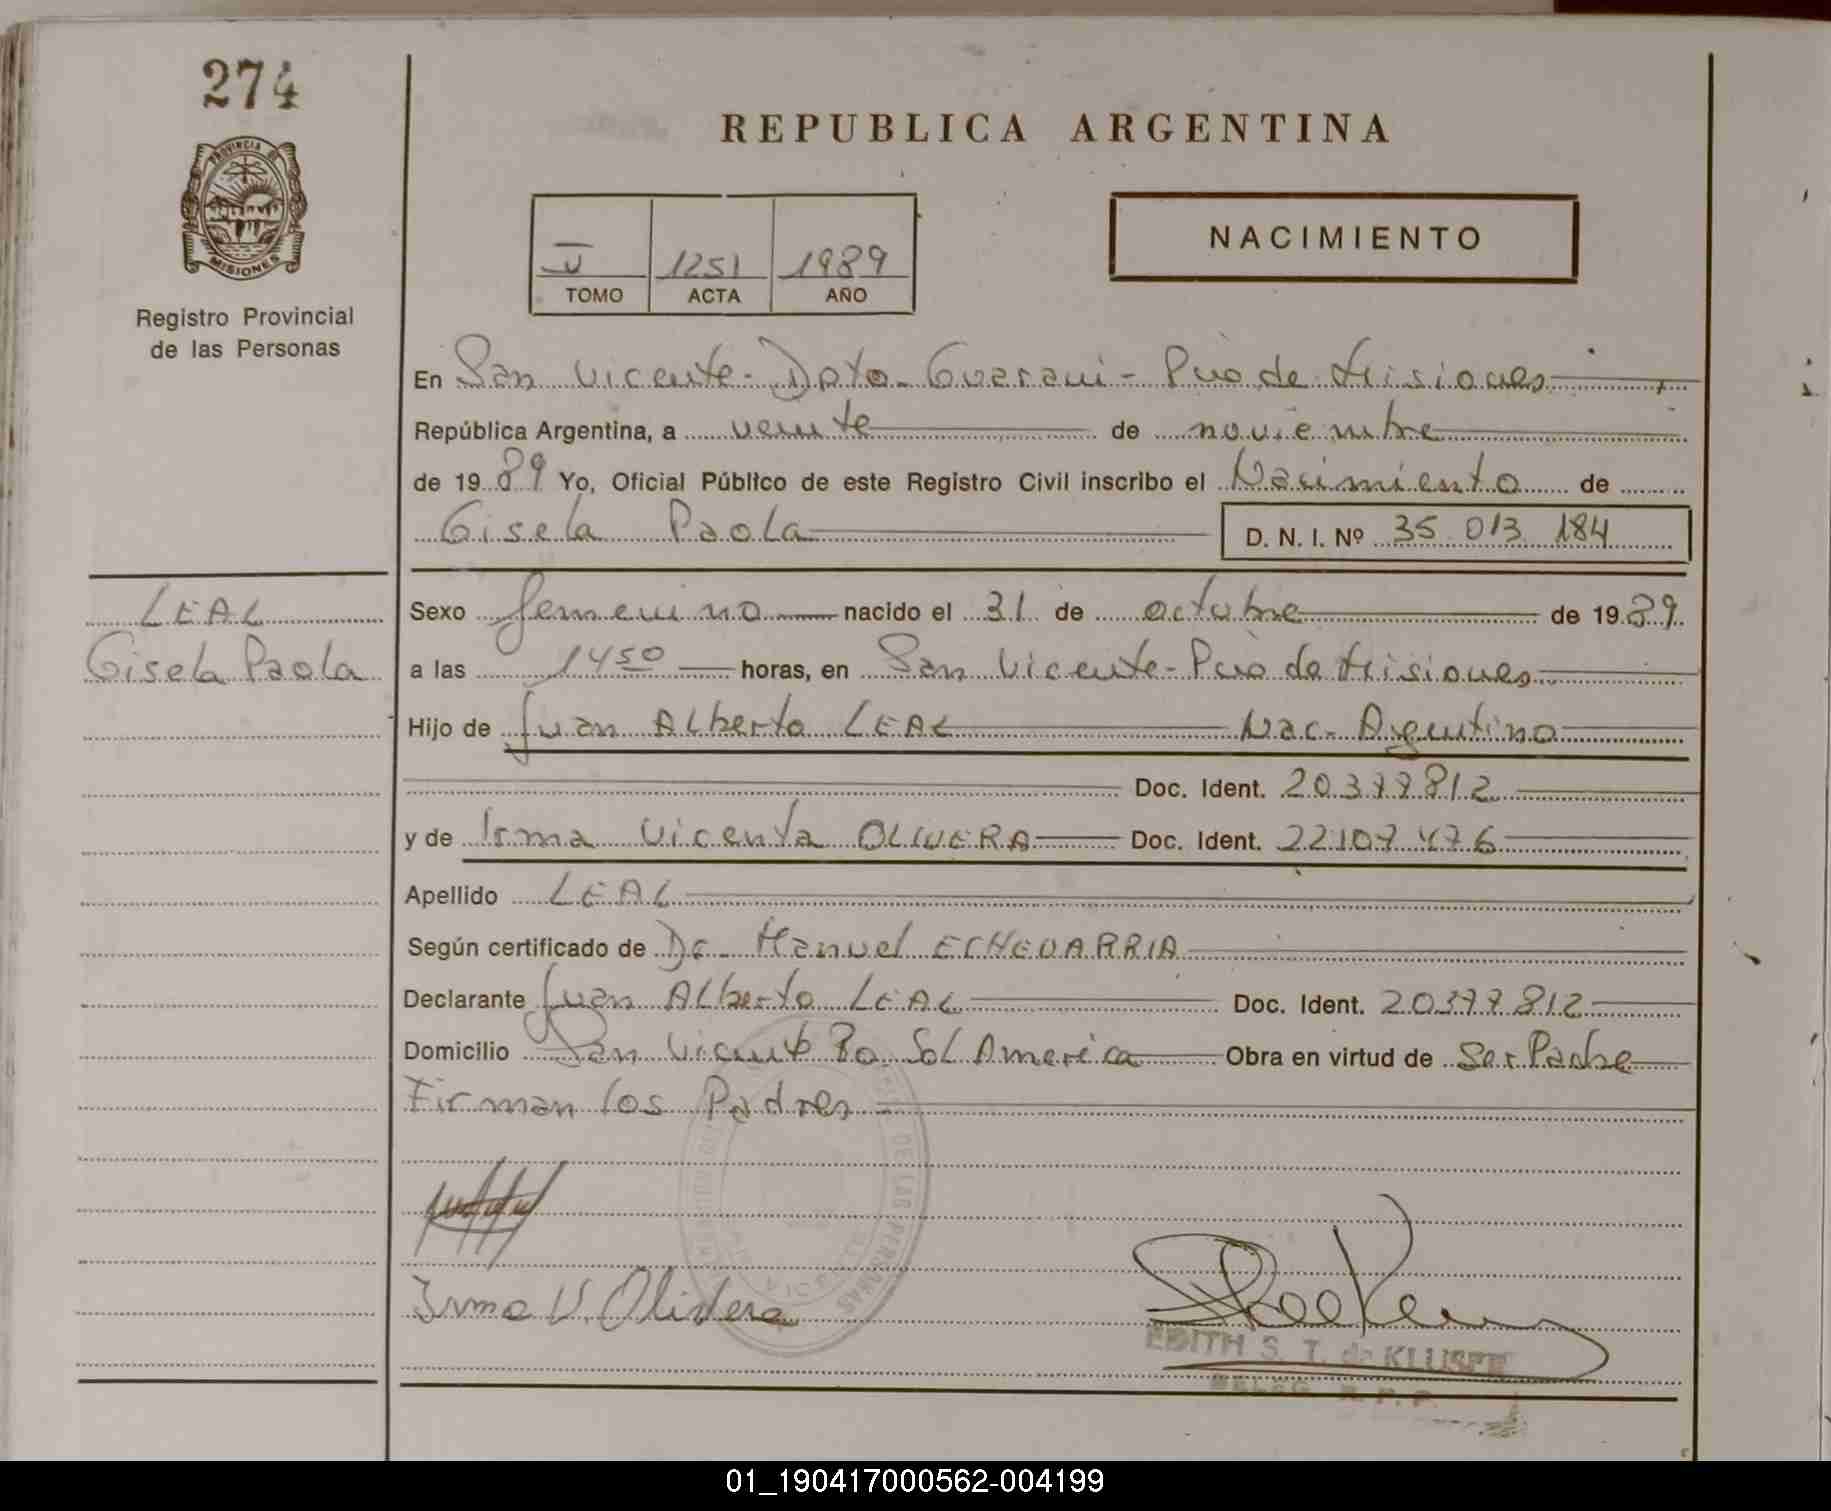 274
REPUBLICA ARGENTINA
PROVINCIA DE
MISIONES
Registro Provincial
de las Personas
V 1251 1989
TOMO ACTA AÑO
NACIMIENTO
En San Vicente - Dpto. Guarani - Pcia de Misiones
República Argentina, a veinte de noviembre
de 1989 Yo, Oficial Público de este Registro Civil inscribo el Nacimiento de
Gisela Paola D. N. I. Nº 35 013 184
LEAL
Gisela Paola
Sexo femenino nacido el 31 de octubre de 1989
a las 14 50 horas, en San Vicente - Pcia de Misiones
Hijo de Juan Alberto LEAL Nac. Argentino
Doc. Ident. 20377812
y de Irma Vicenta OLIVERA Doc. Ident. 22107476
Apellido LEAL
Según certificado de Dr. Manuel ECHEVARRIA
Declarante Juan Alberto LEAL Doc. Ident. 20377812
Domicilio San Vicente Bo Sol America Obra en virtud de Ser Padre
Firman los Padres
DE LAS PERSONAS
Irma V. Olivera
EDITH S. T. de
DELEG. R. P. P.
01_190417000562-004199